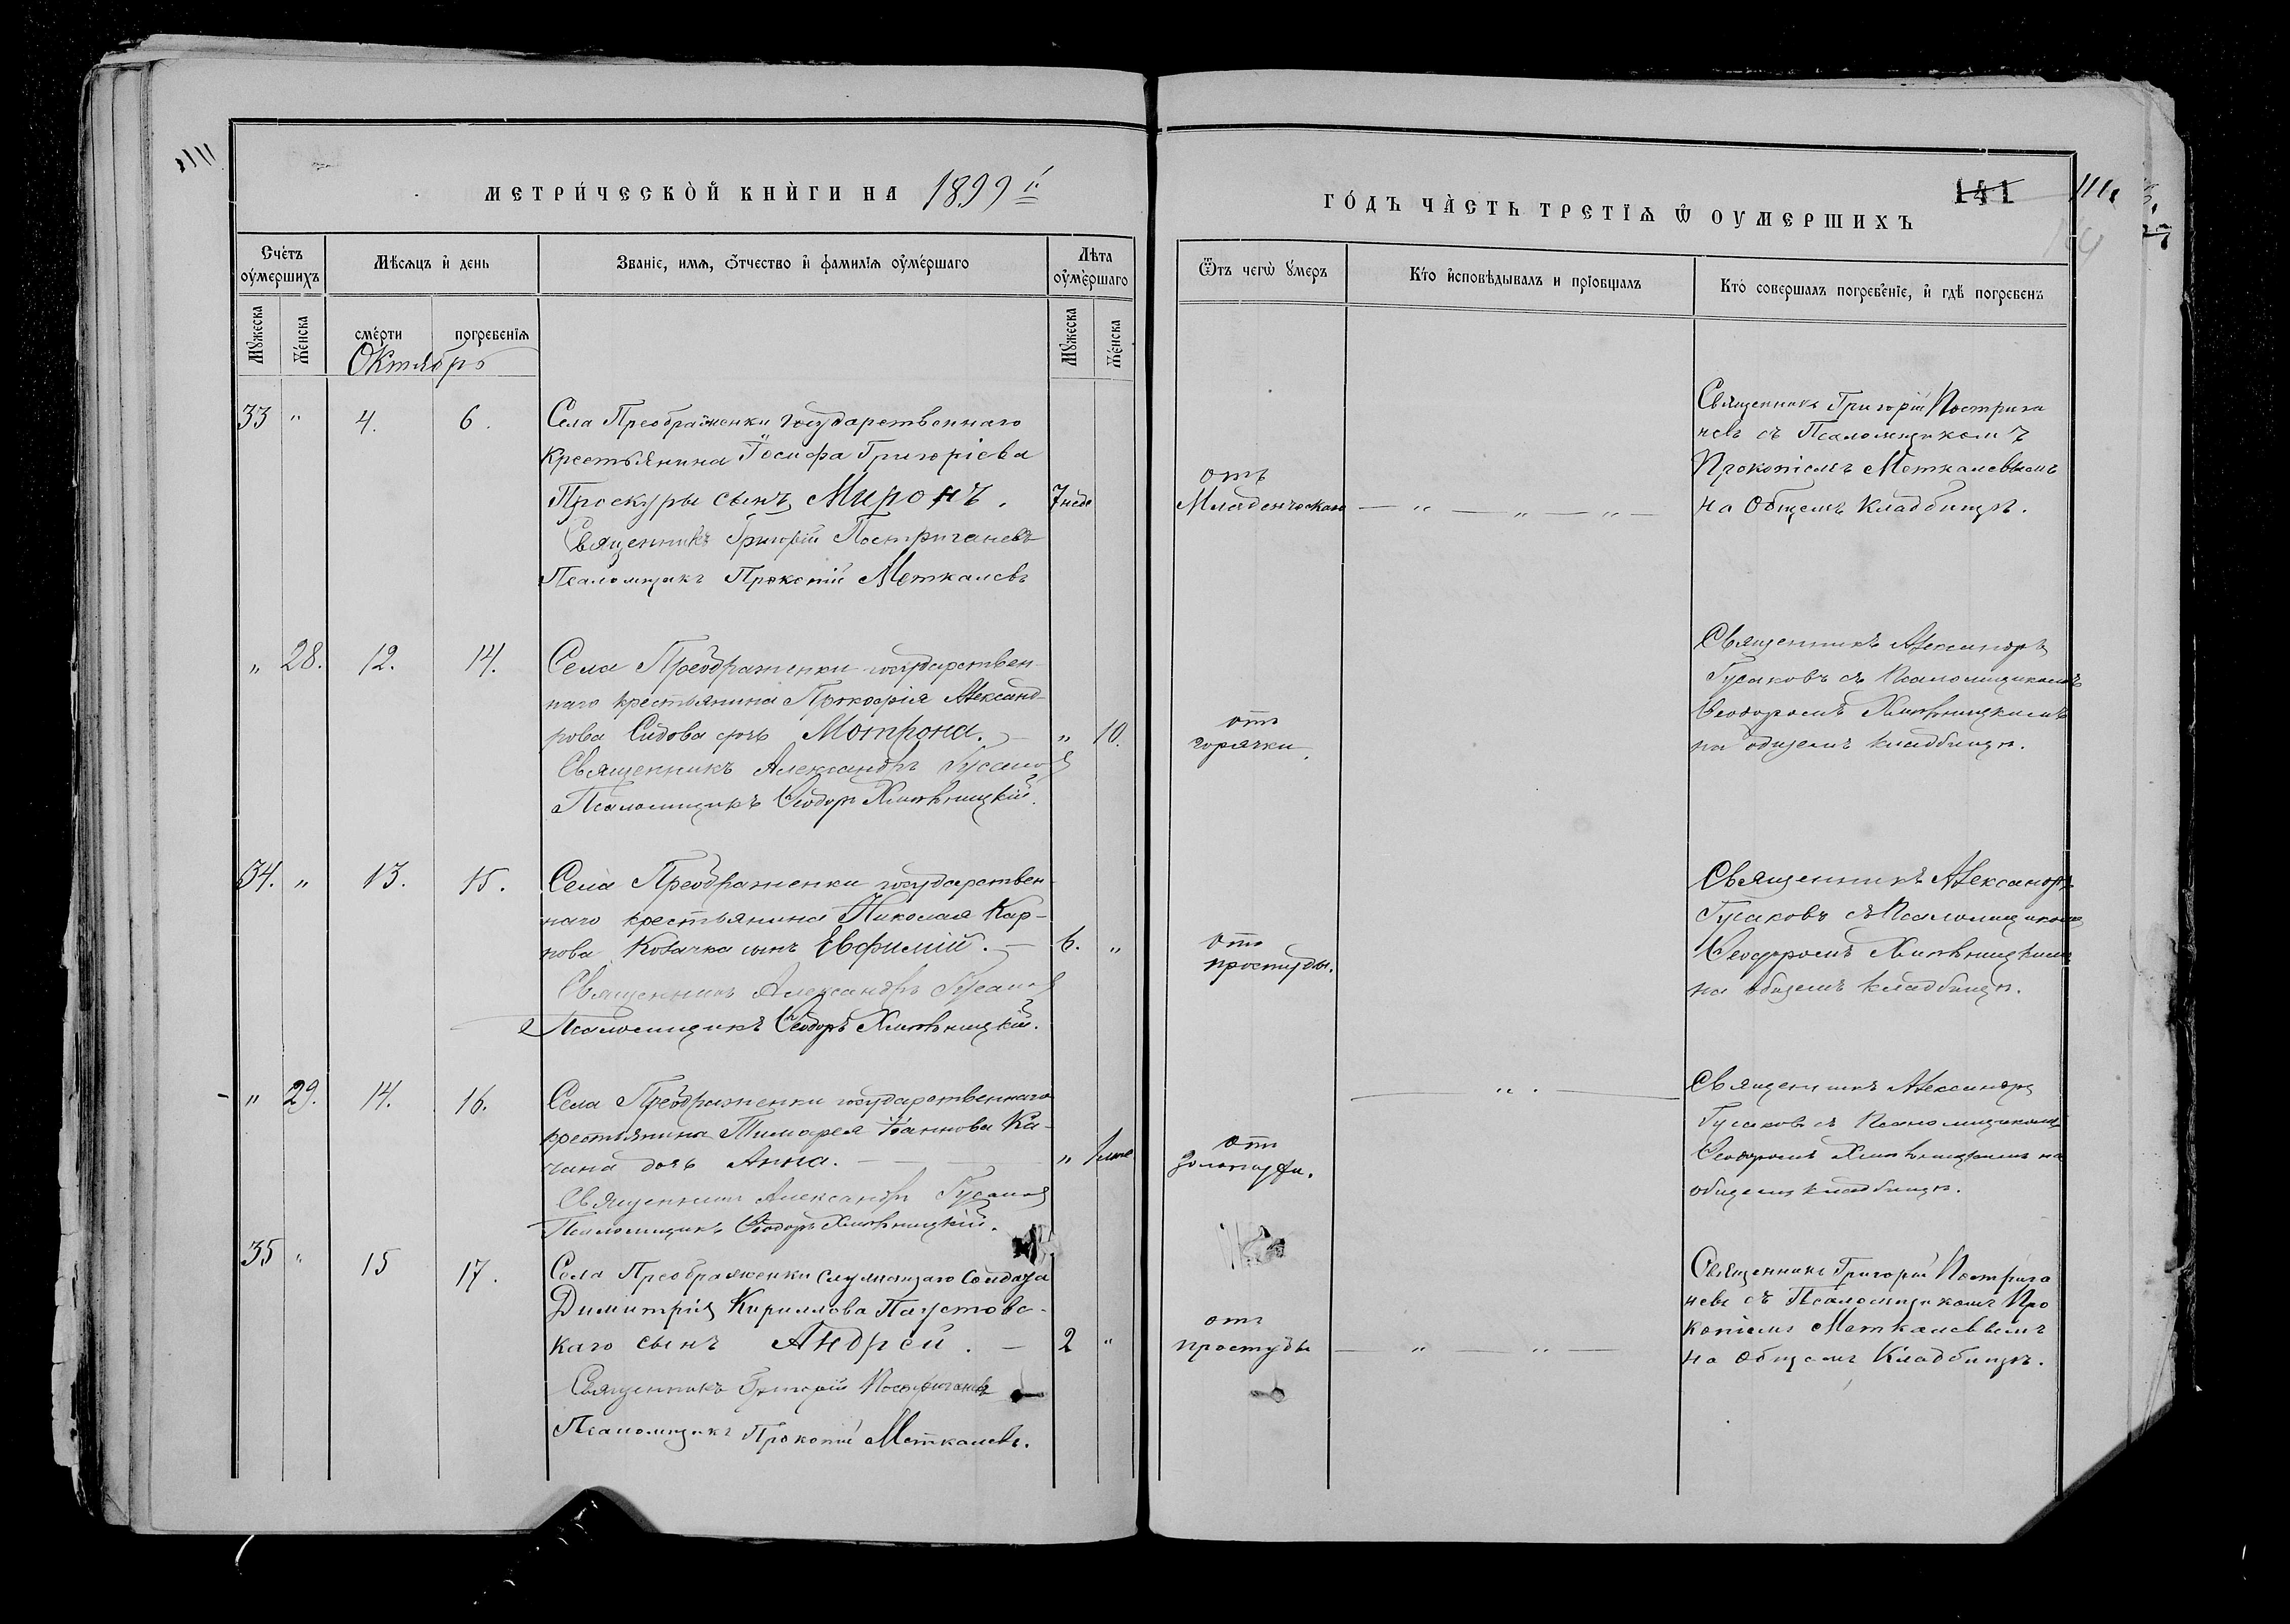 МЕТРИ́ЧЕСКО̀Й КНЍГИ НА 1899 й
ГО́ДЪ ЧА̀СТЬ ТРЕТІѦ Ѿ ОУМЕРШИХЪ
141
111
Сче́тъ оу҆ме́ршихъ
Мѣ́сѧцъ и҆ день
Зва́нїе, и҆мѧ, ѻ҆́тчество и҆ фамилїѧ оу҆ме́ршаго
Лѣ́та оу҆ме́ршаго
Ѿтъ чегѡ̀ ᲂу҆меръ
Кто̀ и҆сповѣ́дывалъ и прїобща́лъ
Кто́ соверша́лъ погребе́нїе, и҆ гдѣ̀ погребе́нъ
Мꙋ́жеска
Же́нска
сме́рти
погребе́нїѧ
Мꙋ́жеска
Же́нска
Октябрь
33 " 4. 6.
Села Преображенки государственнаго
крестьянина Іосифа Григоріева
Проскуры сынъ Миронъ. 7 нед
Священникъ Григорій Постригачевъ
Псаломщикъ Прокопій Меткалевъ
отъ
Младенческаго
Священникъ Григорій Пострига
чевъ съ Псаломщикомъ
Прокопіемъ Меткалевымъ
на Общемъ Кладбищѣ.
" 28. 12. 14.
Села Преображенки государствен-
наго крестьянина Александ-
рова дочь Мотрона. " 10.
Священникъ Александръ Гусаковъ
Псаломщикъ Ѳеодоръ
отъ
горячки.
Священникъ Александръ
Гусаковъ съ Псаломщикомъ
Ѳеодоромъ
на общемъ кладбищѣ.
34. " 13. 15.
Села Преображенки государствен-
наго крестьянина Николая Кар-
пова Козачка сынъ Евфимій. 6. "
Священникъ Александръ Гусаковъ
Псаломщикъ Ѳеодоръ
отъ
простуды.
Священникъ Александръ
Гусаковъ съ Псаломщикомъ
Ѳеодоромъ
на общемъ кладбищѣ.
" 29. 14. 16.
Села Преображенки государственнаго
крестьянина Тимоѳея Іоаннова Ка-
чана дочь Анна. "
Священникъ Александръ Гусаковъ
Псаломщикъ Ѳеодоръ
отъ
золотухи.
Священникъ Александръ
Гусаковъ съ Псаломщикомъ
Ѳеодоромъ на
общемъ кладбищѣ.
35 " 15 17.
Села Преображенки служащаго солдата
Димитрія Кириллова Паустовс-
каго сынъ Андрей. 2 "
Священникъ Григорій Постригачевъ
Псаломщикъ Прокопій Меткалевъ.
отъ
простуды
Священникъ Григорій Пострига
чевъ съ Псаломщикомъ Про
копіемъ Меткалевымъ
на общемъ Кладбищѣ.